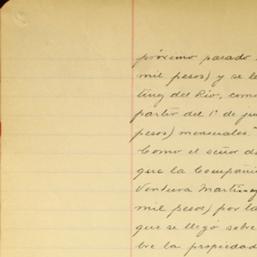 próximo pasado
mil pesos) y se le
tínez del Río, como
partir del 1° de ju
pesos) mensuales."
Como el señor d
que la Compañí
Ventura Martínez
mil pesos) por la
que se llegó sobre
bre la propiedad